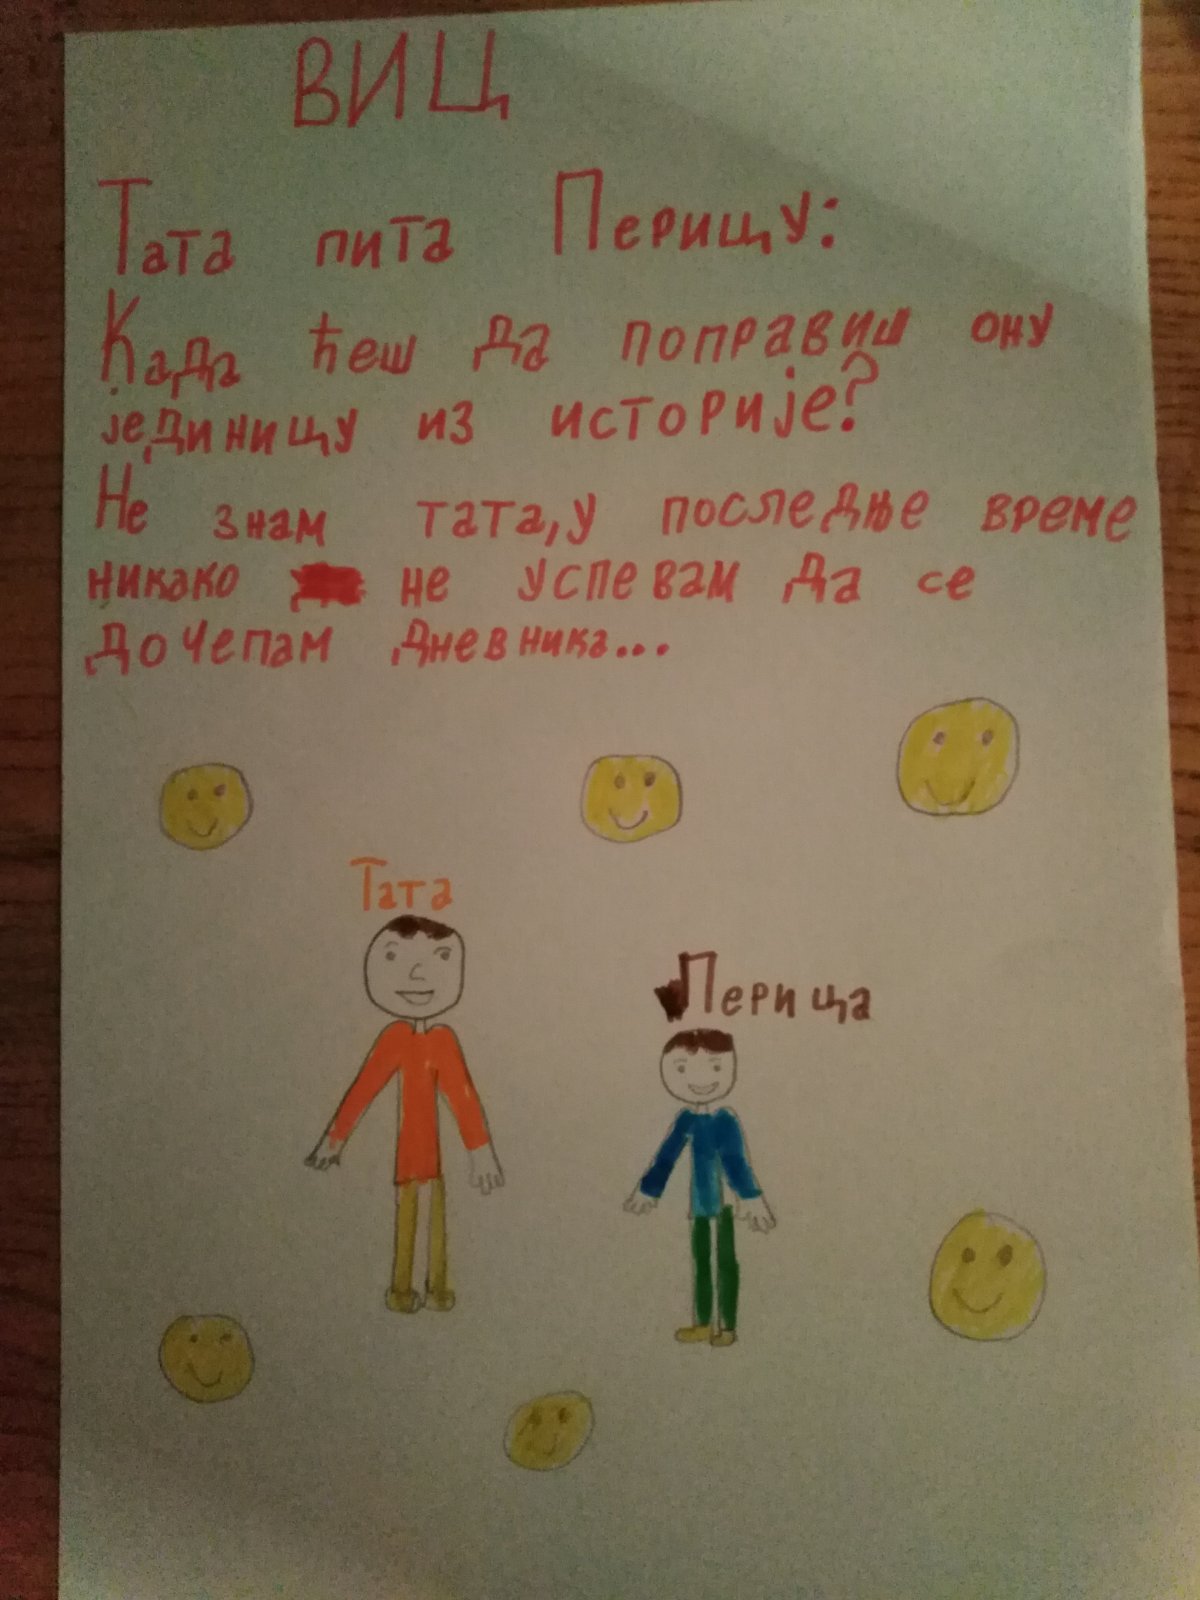 ВИЦ
Тата пита Перицу:
Када ћеш да поправиш ону
јединицу из историје?
Не знам тата, у последње време
никако не успевам да се
дочепам дневника...
Тата
Перица